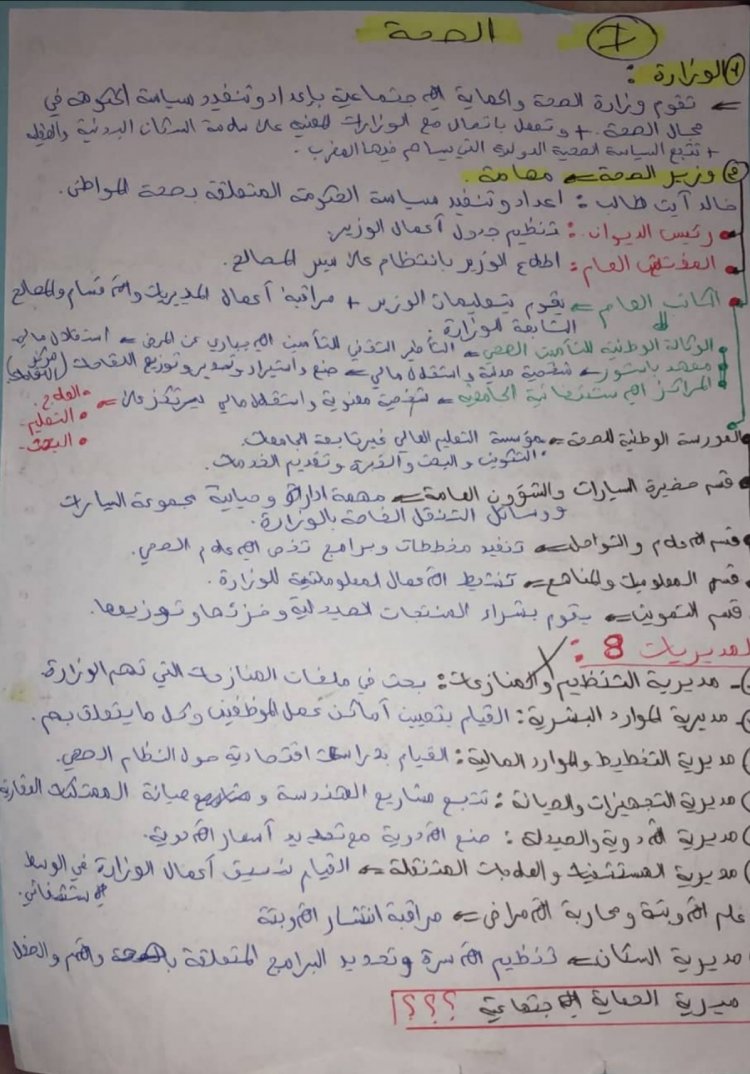 I الصحة
1) الوزارة :
← تقوم وزارة الصحة والحماية الاجتماعية بإعداد وتنفيد سياسة الحكومة في
مجال الصحة. + وتعمل باتصال مع الوزارات المعنية على سلامة السكان البدنية والعقلية
+ تتبع السياسة الصحية الدولية التي يساهم فيها المغرب.
2) وزير الصحة ← مهامه.
خالد آيت طالب : اعداد وتنفيد سياسة الحكومة المتعلقة بصحة المواطن.
• رئيس الديوان : تنظيم جدول أعمال الوزير.
• المفتش العام : اطلاع الوزير بانتظام على سير المصالح.
• الكاتب العام ← يقوم بتعليمات الوزير + مراقبة أعمال المديريات والأقسام والمصالح
التابعة للوزارة.
• الوكالة الوطنية للتأمين الصحي ← التأطير التقني للتأمين الاجباري عن المرض ← استقلال مالي
• معهد باستور ← شخصية مدنية واستقلال مالي ← صنع واستيراد وتصدير وتوزيع اللقاحات
• المراكز الاستشفائية الجامعية ← شخصية معنوية واستقلال مالي يرتكز على ←
• العلاج.
• التعليم.
• البحث.
• المدرسة الوطنية للصحة ← مؤسسة التعليم العالي غير تابعة للجامعات.
• التكوين والبحث والخبرة وتقديم الخدمات.
• قسم حضيرة السيارات والشؤون العامة ← مهمة ادارة وصيانة مجموعة السيارات
ووسائل التنقل الخاصة بالوزارة.
• قسم الاعلام والتواصل ← تنفيد مخططات وبرامج تخص الاعلام الصحي.
• قسم المعلوميات والمناهج ← تنشيط الأعمال المعلوماتية للوزارة.
قسم التموين ← يقوم بشراء المنتجات الصيدلية وخزنها وتوزيعها.
المديريات 8 :
- مديرية التنظيم والمنازعات : بحث في ملفات المنازعات التي تهم الوزارة
- مديرية الموارد البشرية : القيام بتعيين أماكن عمل الموظفين وكل ما يتعلق بهم.
) مديرية التخطيط والموارد المالية : القيام بدراسات اقتصادية حول النظام الصحي.
) مديرية التجهيزات والصيانة : تتبع مشاريع الهندسة و صيانة الممتلكات العقارية
) مديرية الأدوية والصيدلة : صنع الأدوية مع تحديد أسعار الأدوية.
) مديرية المستشفيات والعلاجات المتنقلة ← القيام بتنسيق أعمال الوزارة في الوسط
الاستشفائي.
علم الأوبئة ومحاربة الأمراض ← مراقبة انتشار الأوبئة
مديرية السكان ← تنظيم الأسرة وتحديد البرامج المتعلقة بالصحة والأم والطفل
مديرية الحماية الاجتماعية ؟؟؟